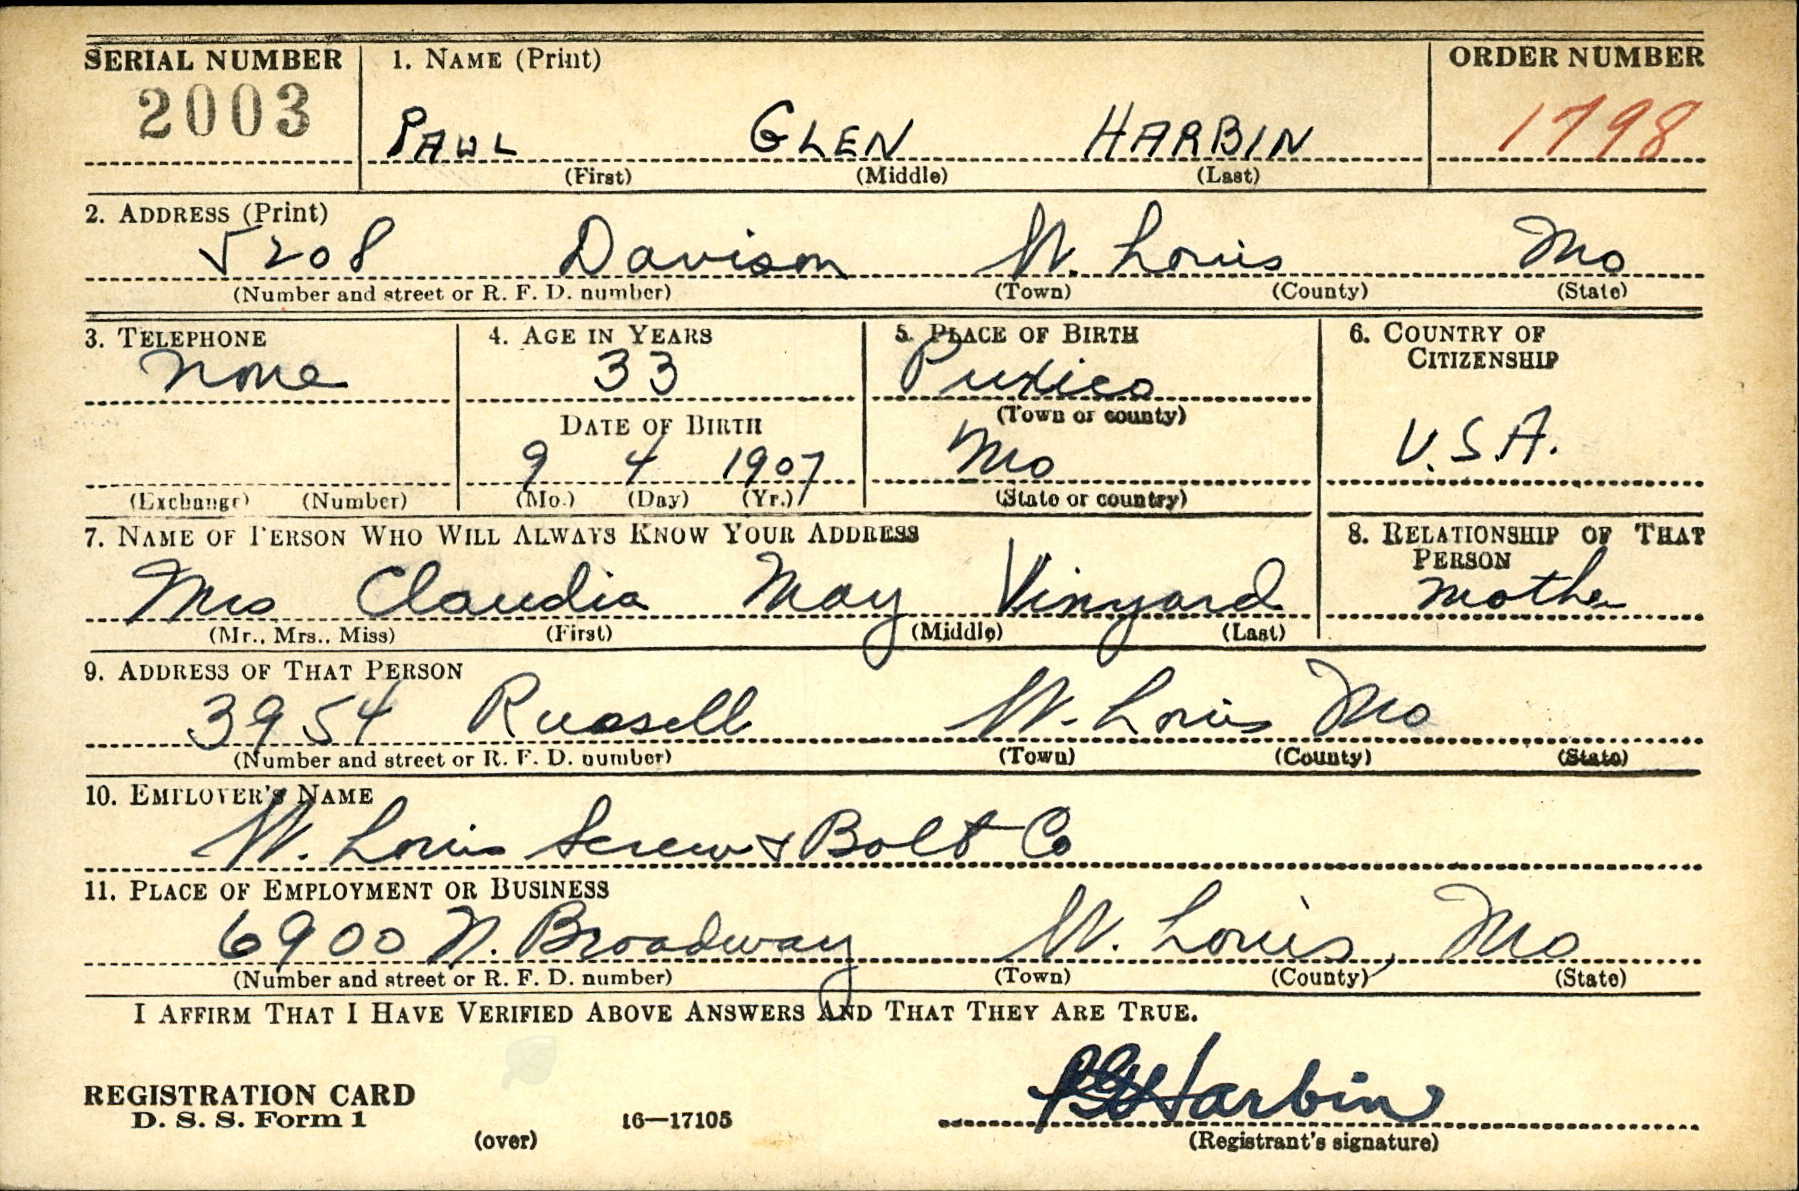 SERIAL NUMBER 1. NAME (Print) ORDER NUMBER
2003 PAUL GLEN HARBIN 1798
(First) (Middle) (Last)
2. ADDRESS (Print)
5208 Davison St. Louis Mo
(Number and street or R. F. D. number) (Town) (County) (State)
3. TELEPHONE 4. AGE IN YEARS 5. PLACE OF BIRTH 6. COUNTRY OF
CITIZENSHIP
none 33 Puxico
(Town or county)
DATE OF BIRTH
9 4 1907 Mo U.S.A.
(Exchange) (Number) (Mo.) (Day) (Yr.) (State or country)
7. NAME OF PERSON WHO WILL ALWAYS KNOW YOUR ADDRESS 8. RELATIONSHIP OF THAT
PERSON
Mrs Claudia May Vinyard Mother
(Mr., Mrs., Miss) (First) (Middle) (Last)
9. ADDRESS OF THAT PERSON
3954 Russell St. Louis Mo
(Number and street or R. F. D. number) (Town) (County) (State)
10. EMPLOYER'S NAME
St. Louis Screw & Bolt Co
11. PLACE OF EMPLOYMENT OR BUSINESS
6900 N. Broadway St. Louis, Mo
(Number and street or R. F. D. number) (Town) (County) (State)
I AFFIRM THAT I HAVE VERIFIED ABOVE ANSWERS AND THAT THEY ARE TRUE.
REGISTRATION CARD
D. S. S. Form 1
P G Harbin
(over) 16—17105 (Registrant's signature)